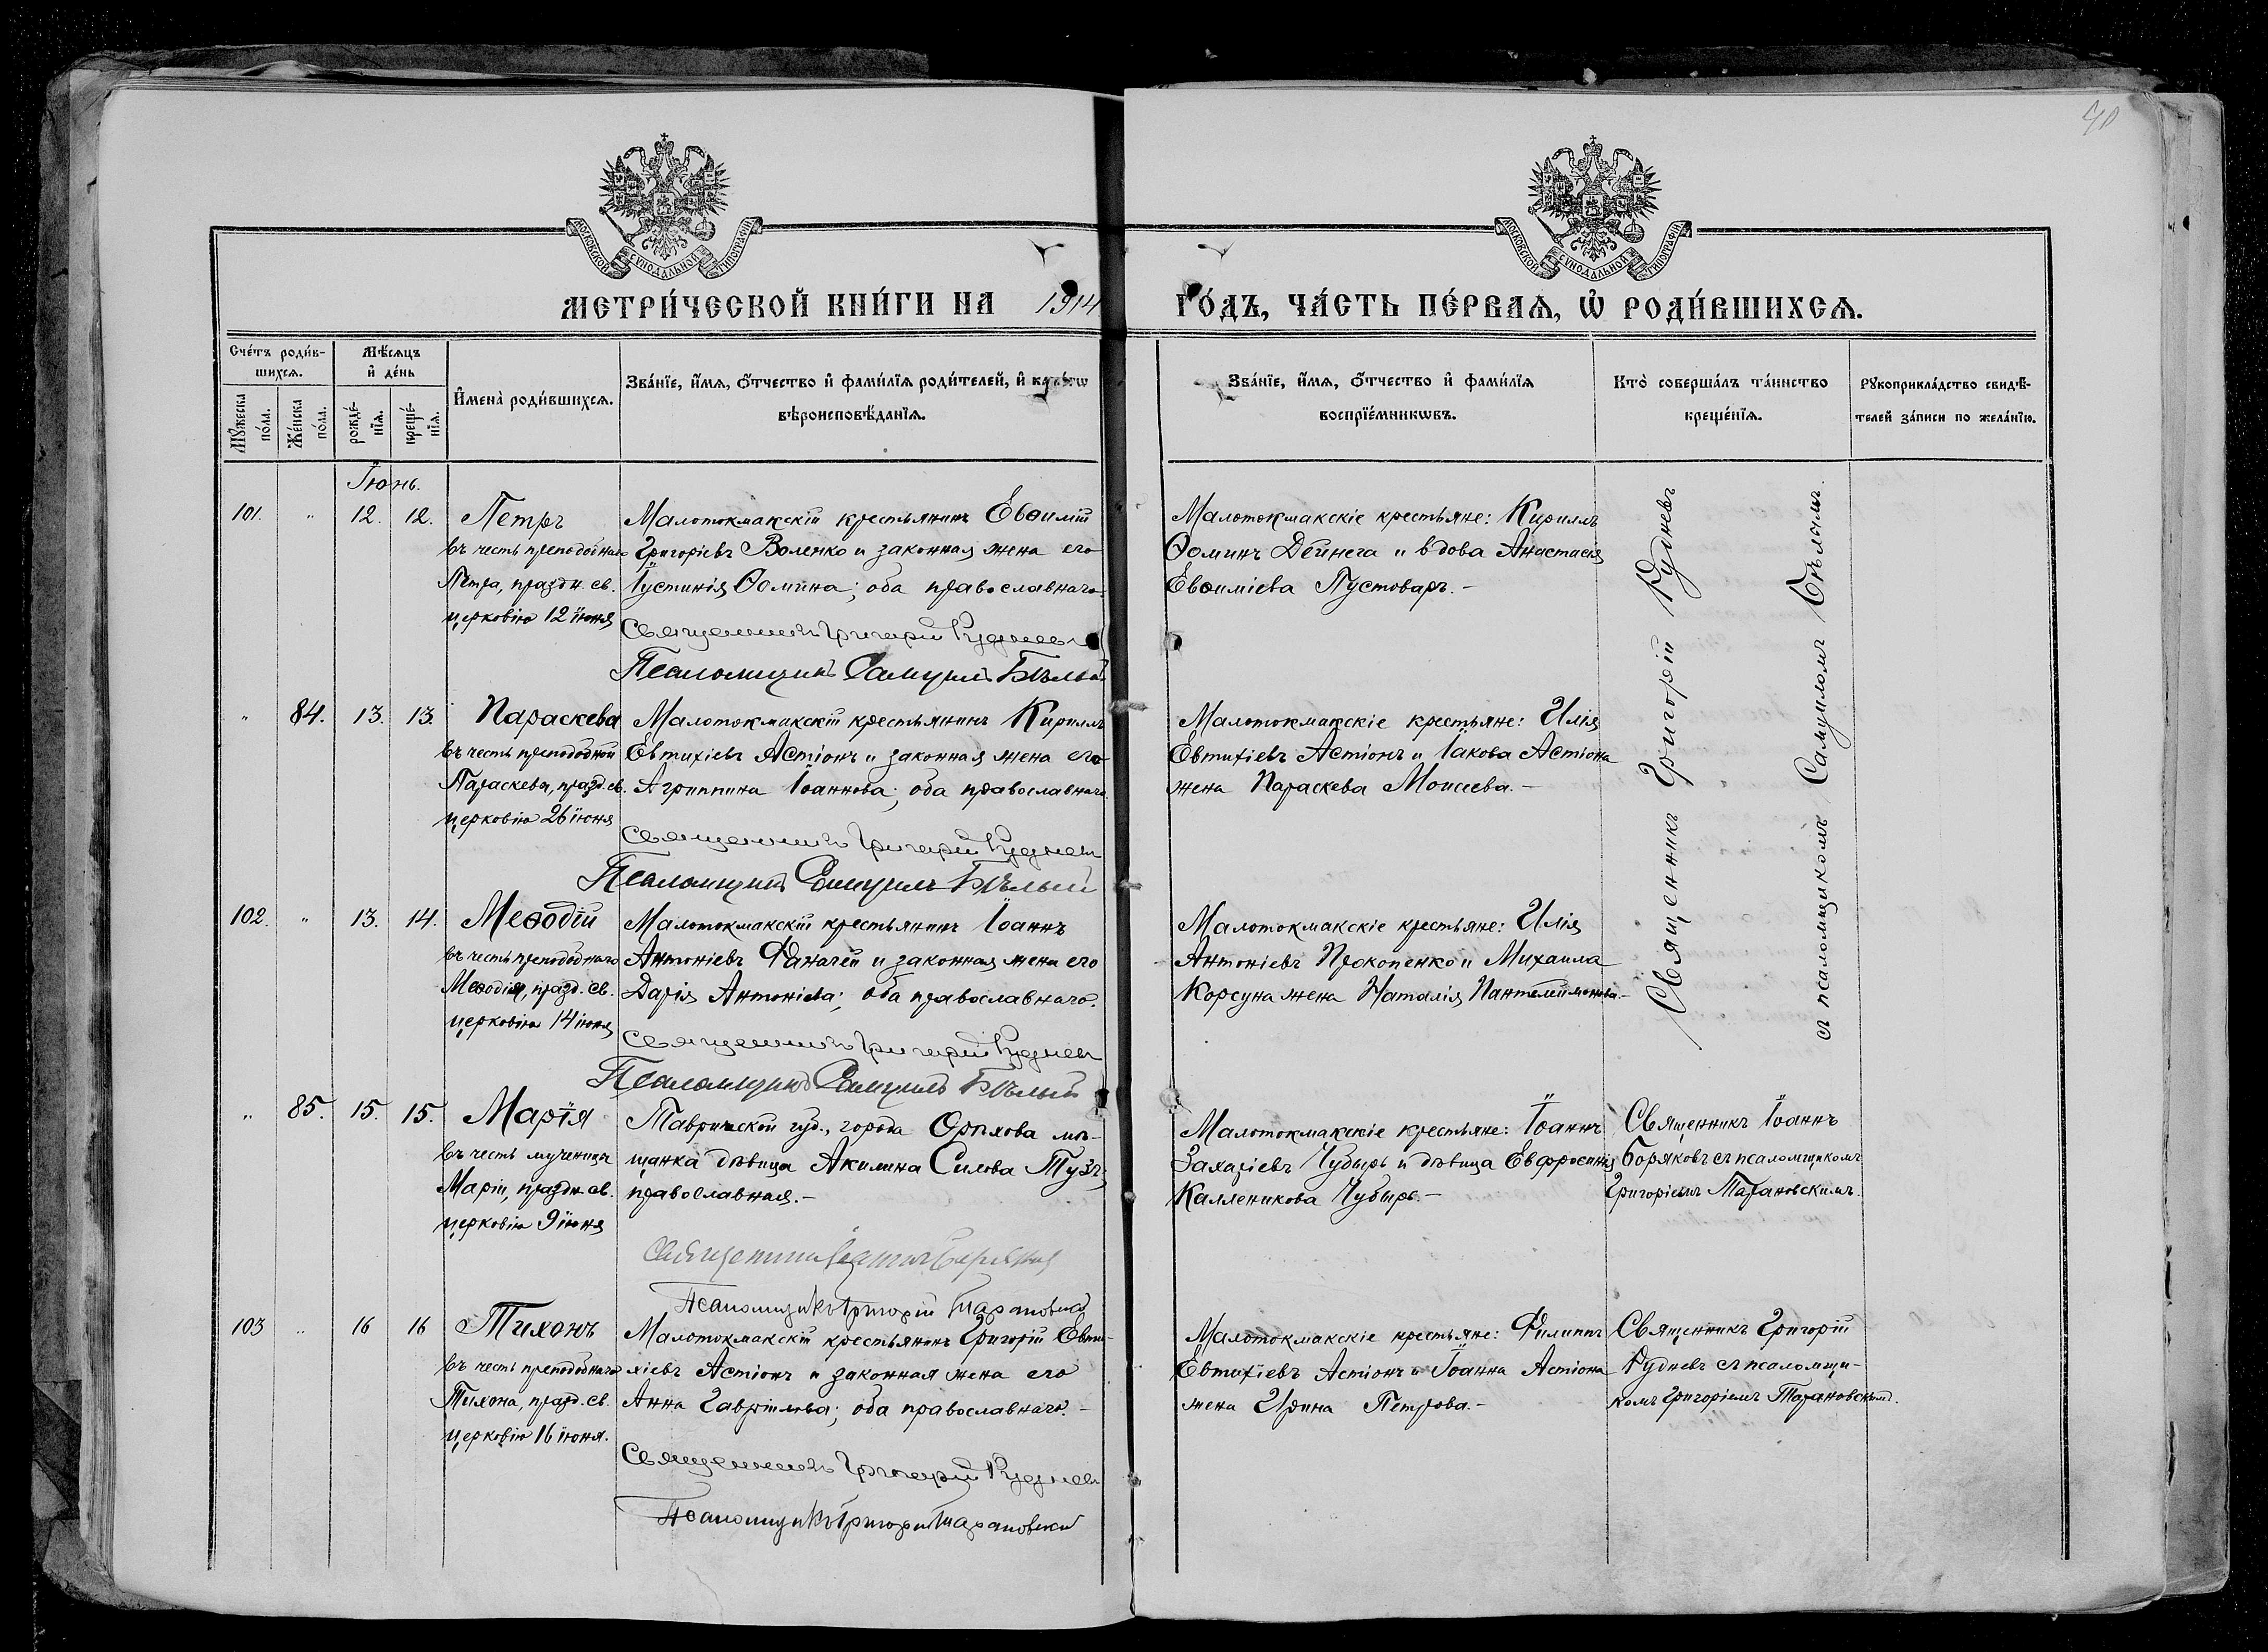 40
МОСКОВСКОЙ СѴНОДАЛЬНОЙ ТИПОГРАФІИ
МОСКОВСКОЙ СѴНОДАЛЬНОЙ ТИПОГРАФІИ
МЕТРИ́ЧЕСКОЙ КНИ́ГИ НА 1914 ГО́ДЪ, ЧА́СТЬ ПЕ́РВАѦ, Ѡ҆ РОДИ́ВШИХСѦ.
Сче́тъ роди́в-
шихсѧ.
Мꙋ́жеска по́ла.
Же́нска по́ла.
Мѣ́сѧцъ
и҆ де́нь
рожде́-
нїѧ.
креще́-
нїѧ.
И҆мена̀ роди́вшихсѧ.
Зва́нїе, и҆́мѧ, ѻ҆́тчество и҆ фами́лїѧ роди́телей, и҆ како́гѡ
вѣроисповѣ́данїѧ.
Зва́нїе, и҆́мѧ, ѻ҆́тчество и҆ фами́лїѧ
воспрїе́мникѡвъ.
Кто̀ соверша́лъ та́инство
креще́нїѧ.
Рꙋкоприкла́дство свидѣ́-
телей за́писи по жела́нїю.
Іюнь.
101. " 12. 12. Петръ
въ честь преподобнаго
Петра, праздн. св.
церковію 12 іюня
Малотокмакскій крестьянинъ Евѳимій
Григоріевъ Воленко и законная жена его
Іустинія Ѳомина; оба православнаго
Священникъ Григорій Рудневъ
Псаломщикъ Самуилъ Бѣлый
Малотокмакскіе крестьяне: Кириллъ
Ѳоминъ Дейнега и вдова Анастасія
Евѳиміева Пустоваръ.-
Священникъ Григорій Рудневъ
съ псаломщикомъ Самуиломъ Бѣлымъ.
" 84. 13. 13. Параскева
въ честь преподобной
Параскевы, празд. св.
церковію 26 іюня
Малотокмакскій крестьянинъ Кириллъ
Евтихіевъ Астіонъ и законная жена его
Агриппина Іоаннова; оба православнаго
Священникъ Григорій Рудневъ
Псаломщикъ Самуилъ Бѣлый
Малотокмакскіе крестьяне: Илія
Евтихіевъ Астіонъ и Іакова Астіона
жена Параскева Моисеева.-
102. " 13. 14. Меѳодій
въ честь преподобнаго
Меѳодія, празд. св.
церковію 14 іюня
Малотокмакскій крестьянинъ Іоаннъ
Антоніевъ и законная жена его
Дарія Антоніева; оба православнаго.
Священникъ Григорій Рудневъ
Псаломщикъ Самуилъ Бѣлый
Малотокмакскіе крестьяне: Илія
Антоніевъ Прокопенко и Михаила
Корсуна жена Наталія Пантелеймонова.-
" 85. 15. 15. Марія
въ честь мученицы
Маріи, праздн. св.
церковію 9 іюня
Таврической губ., города Орѣхова мѣ-
щанка дѣвица Акилина Силова Тузъ,
православная.-
Священникъ Іоаннъ Боряковъ
Псаломщикъ Григорій Тарановскій
Малотокмакскіе крестьяне: Іоаннъ
Захаріевъ Чубырь и дѣвица Евфросинія
Калленикова Чубырь.-
Священникъ Іоаннъ
Боряковъ съ псаломщикомъ
Григоріемъ Тарановскимъ.
103 " 16 16 Тихонъ
въ честь преподобнаго
Тихона, празд. св.
церковію 16 іюня.
Малотокмакскій крестьянинъ Григорій Евти-
хіевъ Астіонъ и законная жена его
Анна Гавріилова; оба православнаго.-
Священникъ Григорій Рудневъ
Псаломщикъ Григорій Тарановскій
Малотокмакскіе крестьяне: Филиппъ
Евтихіевъ Астіонъ и Іоанна Астіона
жена Ирина Петрова.-
Священникъ Григорій
Рудневъ съ псаломщи-
комъ Григоріемъ Тарановскимъ.